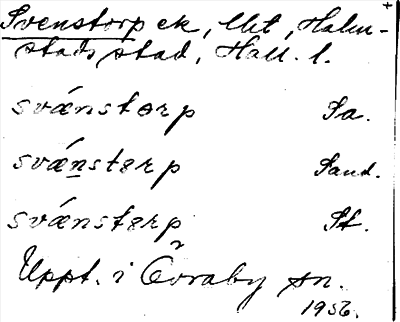 Svenstorp ek, Ebt, Halm-
stads stad, Hall. l.
svǽnstɵrp Sa.
svǽn̲stɐrp Sand.
svǽnstɐrp St.
Uppt. i Övraby sn.
1956.